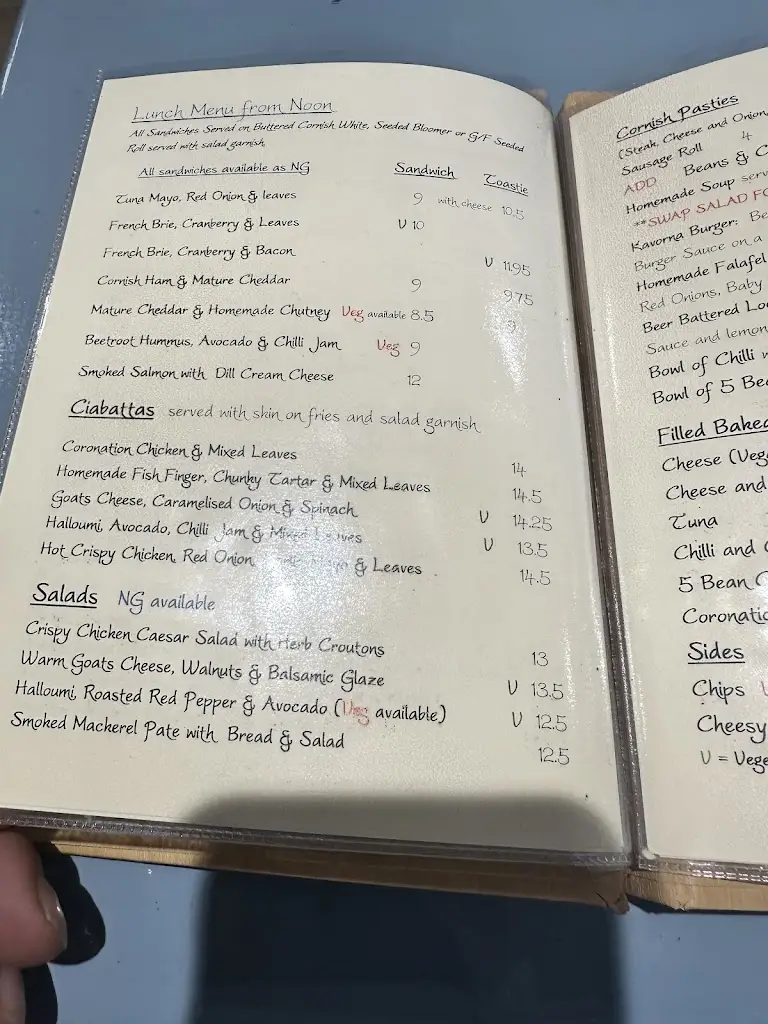 Lunch Menu from Noon
All Sandwiches Served on Buttered Cornish White, Seeded Bloomer or G/F Seeded
Roll served with salad garnish
All sandwiches available as NG Sandwich Toastie
Tuna Mayo, Red Onion & leaves 9 with cheese 10.5
French Brie, Cranberry & Leaves V 10
French Brie, Cranberry & Bacon V 11.95
Cornish Ham & Mature Cheddar 9 9.75
Mature Cheddar & Homemade Chutney Veg available 8.5 9
Beetroot Hummus, Avocado & Chilli Jam Veg 9
Smoked Salmon with Dill Cream Cheese 12
Ciabattas served with skin on fries and salad garnish
Coronation Chicken & Mixed Leaves 14
Homemade Fish Finger, Chunky Tartar & Mixed Leaves 14.5
Goats Cheese, Caramelised Onion & Spinach V 14.25
Halloumi, Avocado, Chilli Jam & Mixed Leaves V 13.5
Hot Crispy Chicken, Red Onion & Leaves 14.5
Salads NG available
Crispy Chicken Caesar Salad with Herb Croutons 13
Warm Goats Cheese, Walnuts & Balsamic Glaze V 13.5
Halloumi, Roasted Red Pepper & Avocado (Veg available) V 12.5
Smoked Mackerel Pate with Bread & Salad 12.5
Cornish Pasties
(Steak, Cheese and Onion,
Sausage Roll 4
ADD Beans & C
Homemade Soup serv
**SWAP SALAD FO
Kavorna Burger: Be
Burger Sauce on a
Homemade Falafel
Red Onions, Baby
Beer Battered Lo
Sauce and lemon
Bowl of Chilli w
Bowl of 5 Bea
Filled Baked
Cheese (Veg
Cheese and
Tuna
Chilli and C
5 Bean C
Coronatio
Sides
Chips V
Cheesy
V = Vege